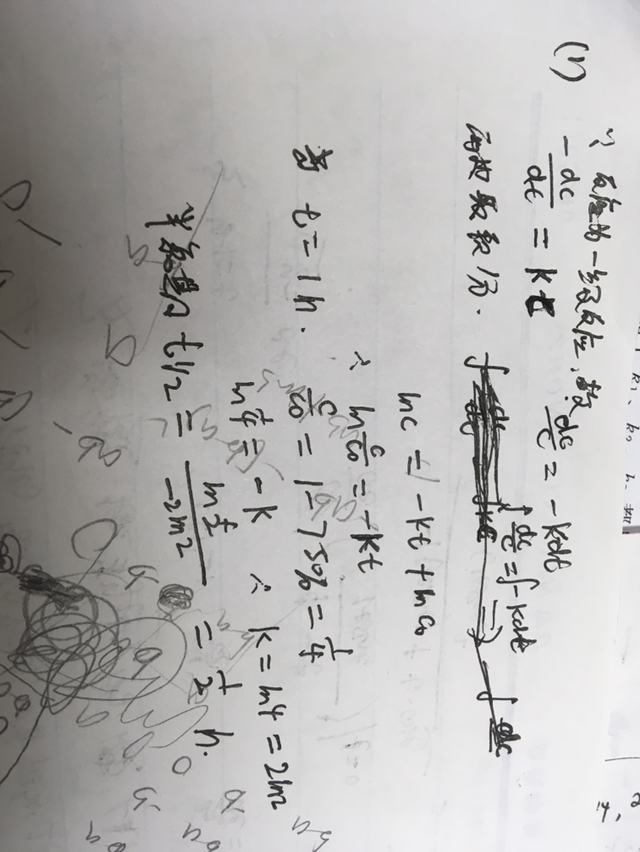 (1)
∵反应为一级反应,故 dc/c = -kdt
-dc/dt = k
两边取积分. ∫dc/c = ∫-kdt
lnc = -kt + lnc₀
∴ ln c/c₀ = -kt
当 t = 1h. c/c₀ = 1-75% = 1/4
ln 1/4 = -k ∴ k = ln4 = 2ln2
半衰期 t1/2 = ln 1/2 / -2ln2 = 1/2 h.